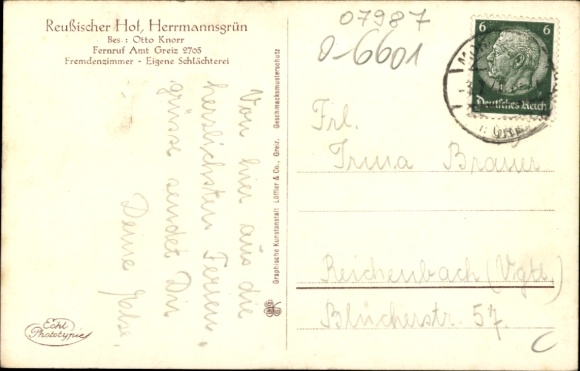 Reußischer Hof, Herrmannsgrün
Bes.: Otto Knorr
Fernruf Amt Greiz 2705
Fremdenzimmer - Eigene Schlächterei
Von hier aus die
herzlichsten Ferien-
grüsse sendet Dir
Deine
Echt
Phototypie
Graphische Kunstanstalt Löffler & Co., Greiz. Geschmacksmusterschutz
07987
0-6601
6 6
Deutsches Reich
Frl.
Irma Brauer
Reichenbach (Vgtl.)
Blücherstr. 57.